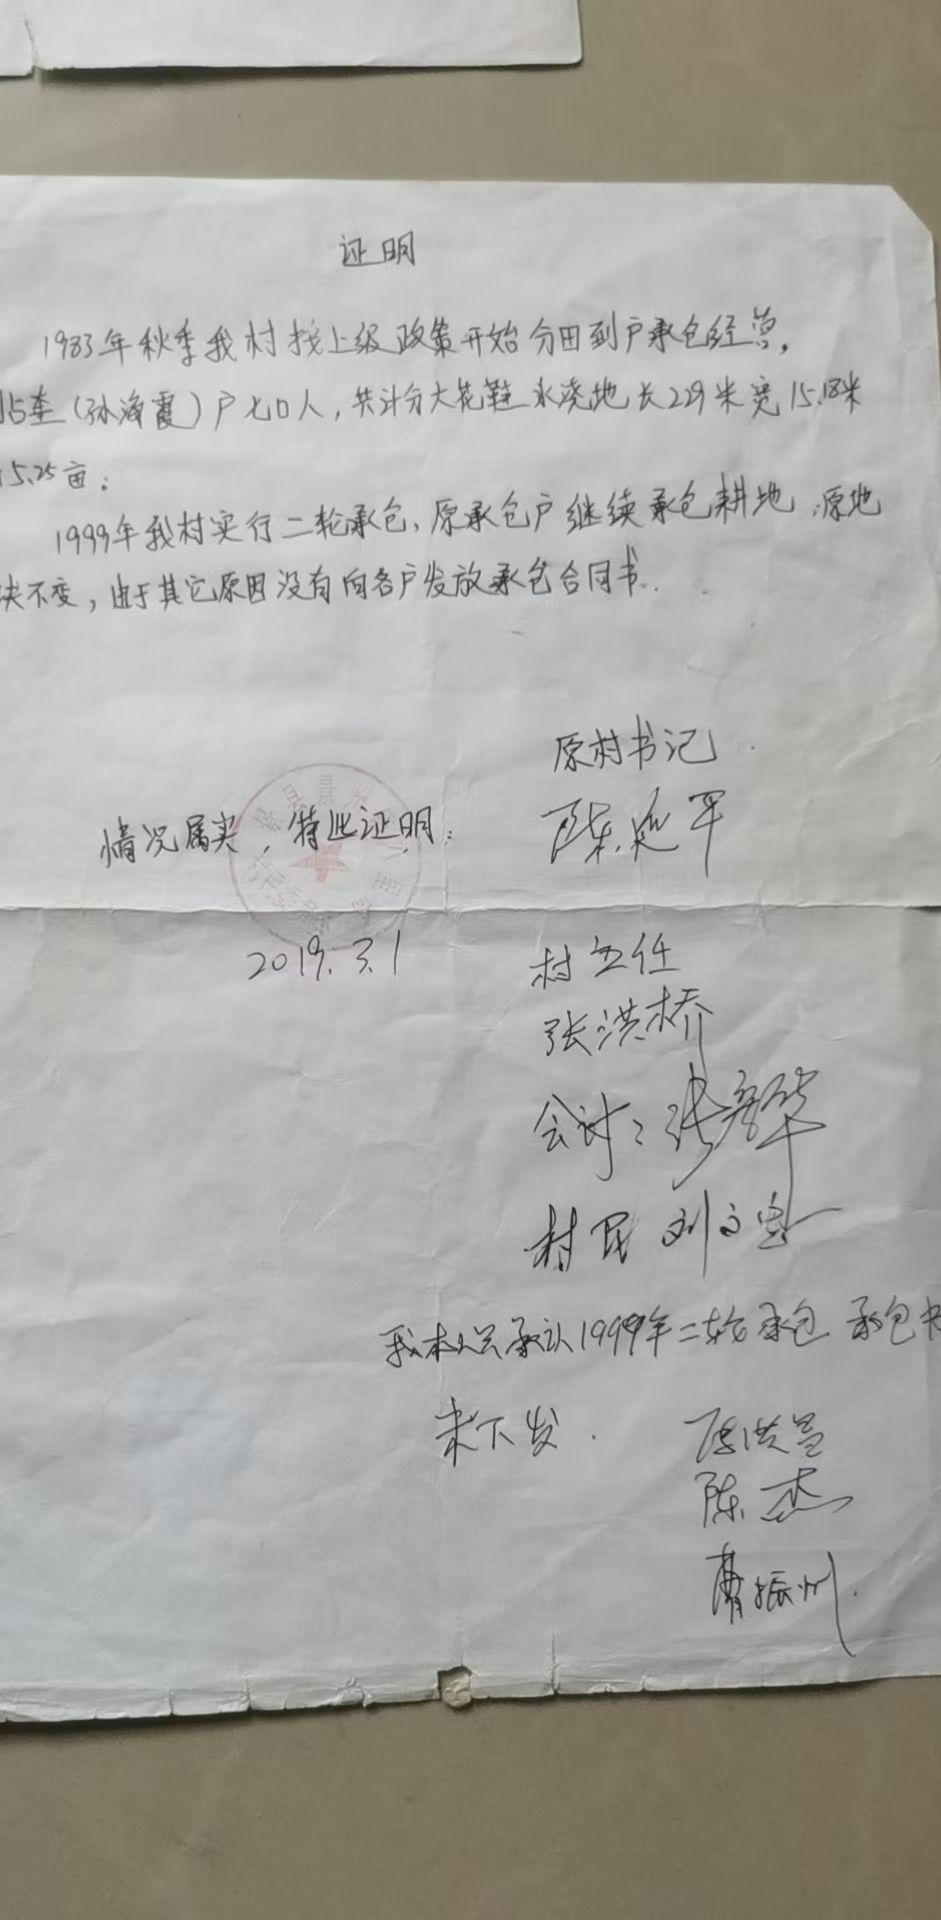 证明
1983年秋季我村按上级政策开始分田到户承包经营，
占奎（孙海霞）户七口人，共计分大花鞋水浇地长229米宽15.18米
5.25亩；
1999年我村实行二轮承包，原承包户继续承包耕地，原地
块不变，由于其它原因没有向各户发放承包合同书．
原村书记
情况属实，特此证明；
陈延平
2019.3.1
村主任
张洪桥
会计：张
村民 刘文
承认1999年二轮承包 承包书
未下发．
陈洪
陈杰
振州